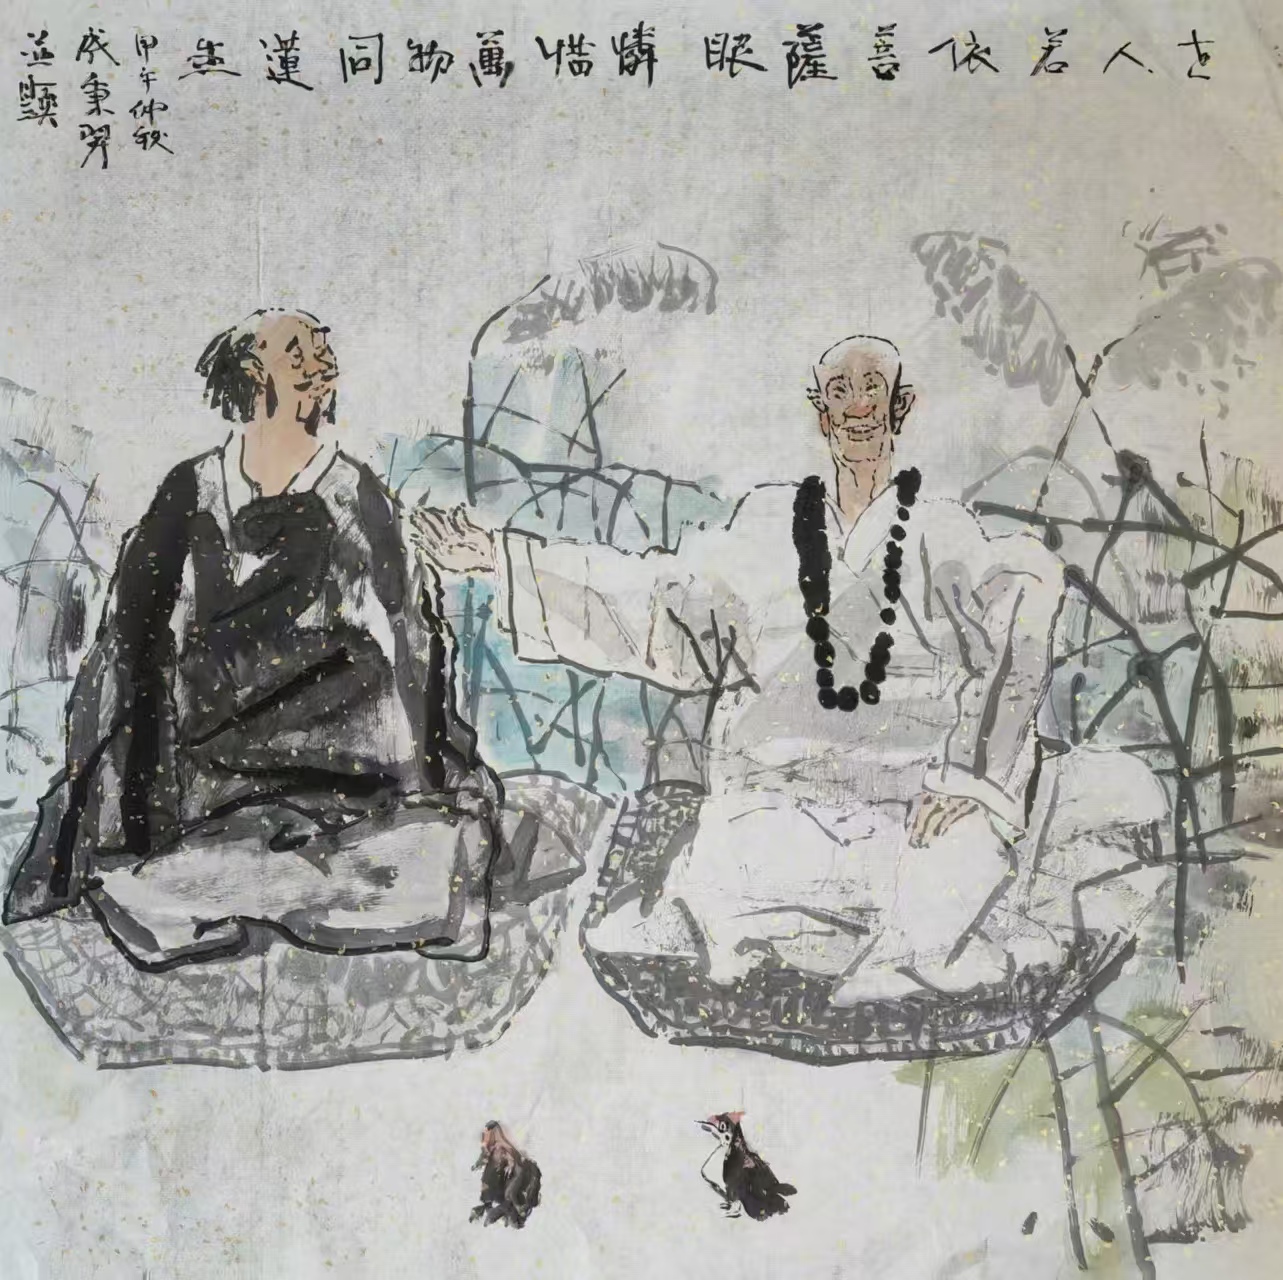 世人若依菩薩眼 憐惜萬物同蓮生
甲午仲秋
成秉羿
並題